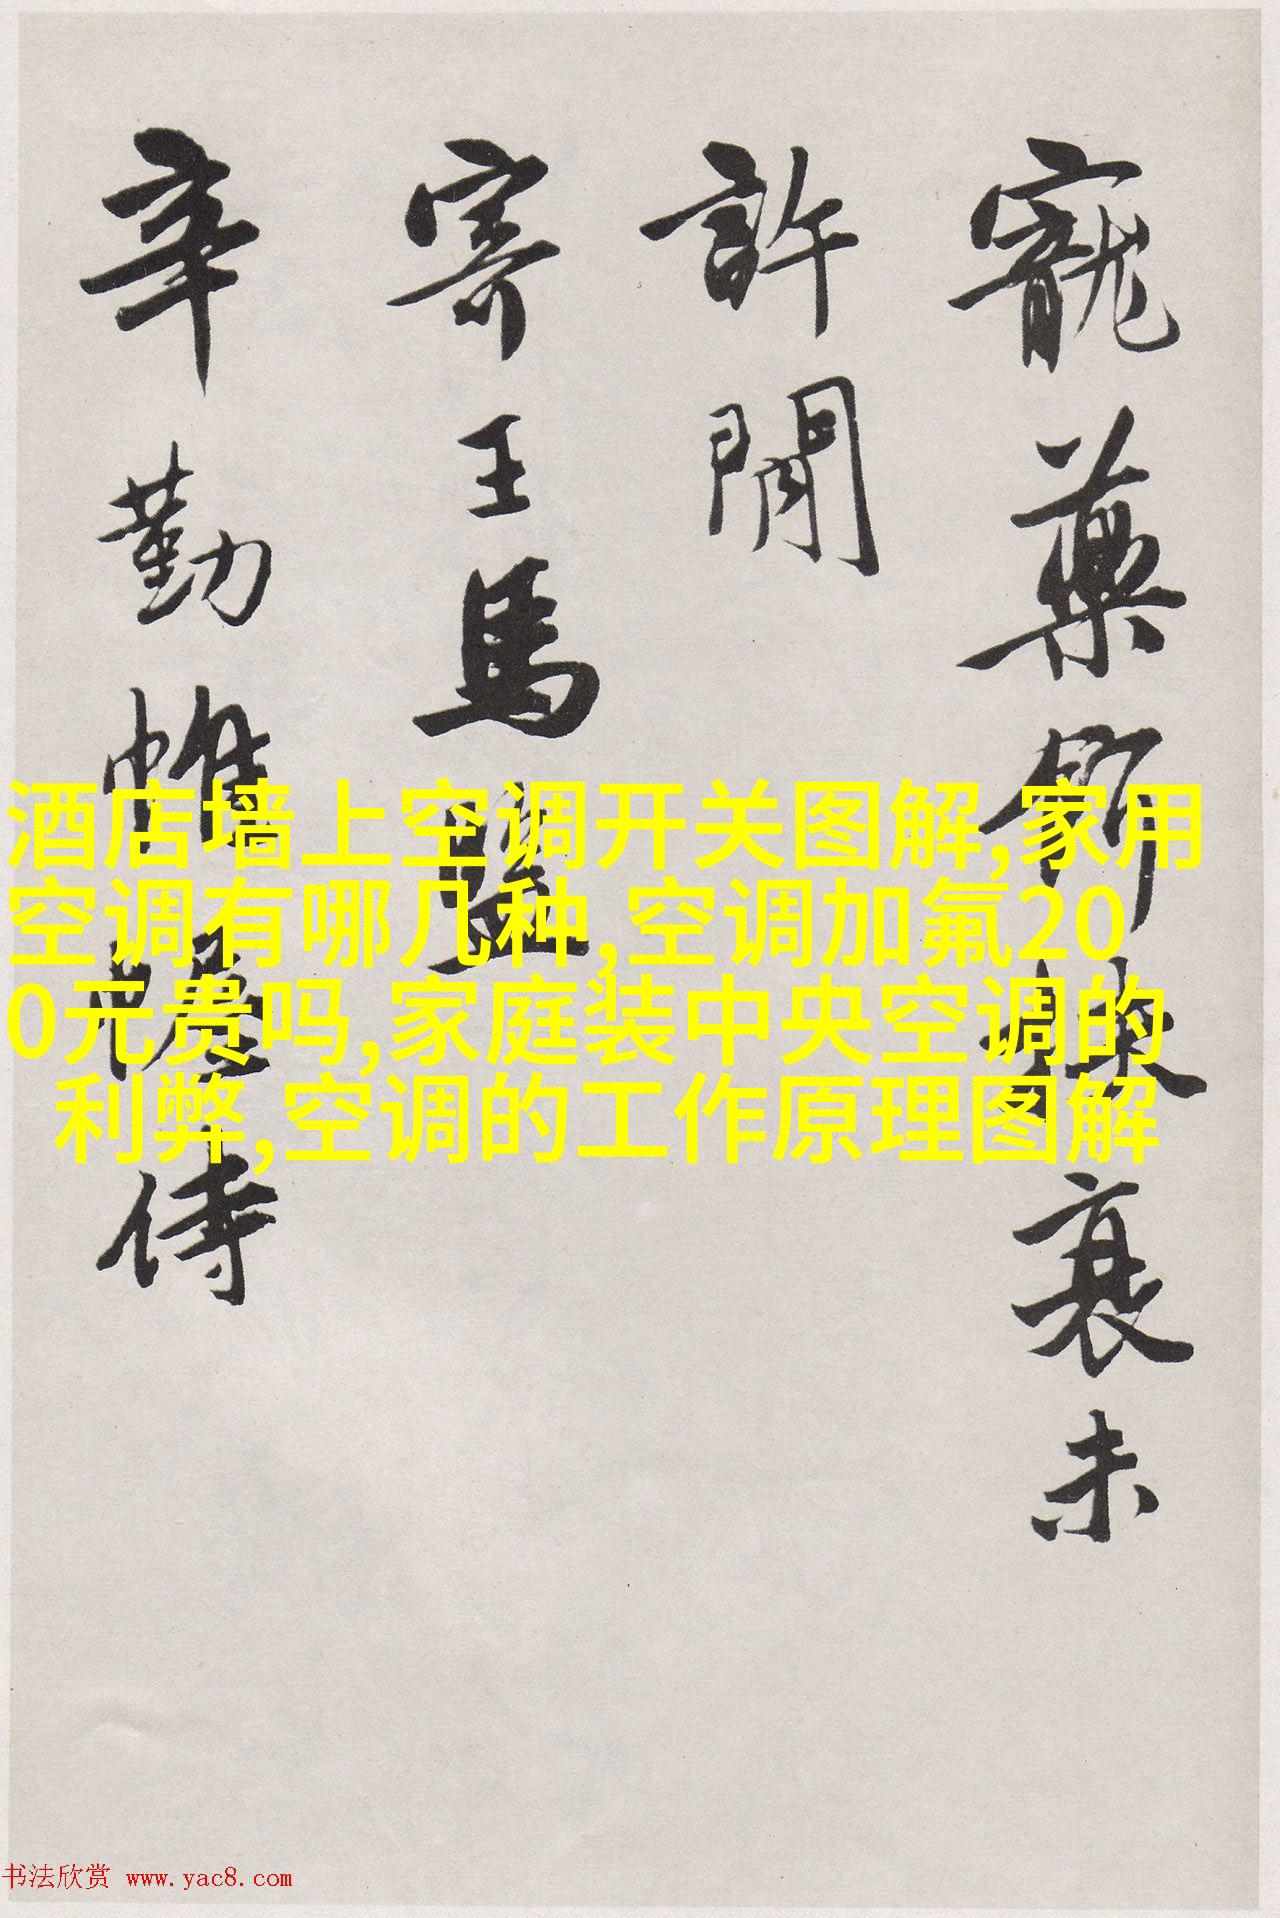 寵藥衰未
許閒
寄王馬監
辛勤帷幄侍
酒店墙上空调开关图解,家用
空调有哪几种,空调加氟20
0元贵吗,家庭装中央空调的
利弊,空调的工作原理图解
书法欣赏 www.yac8.com